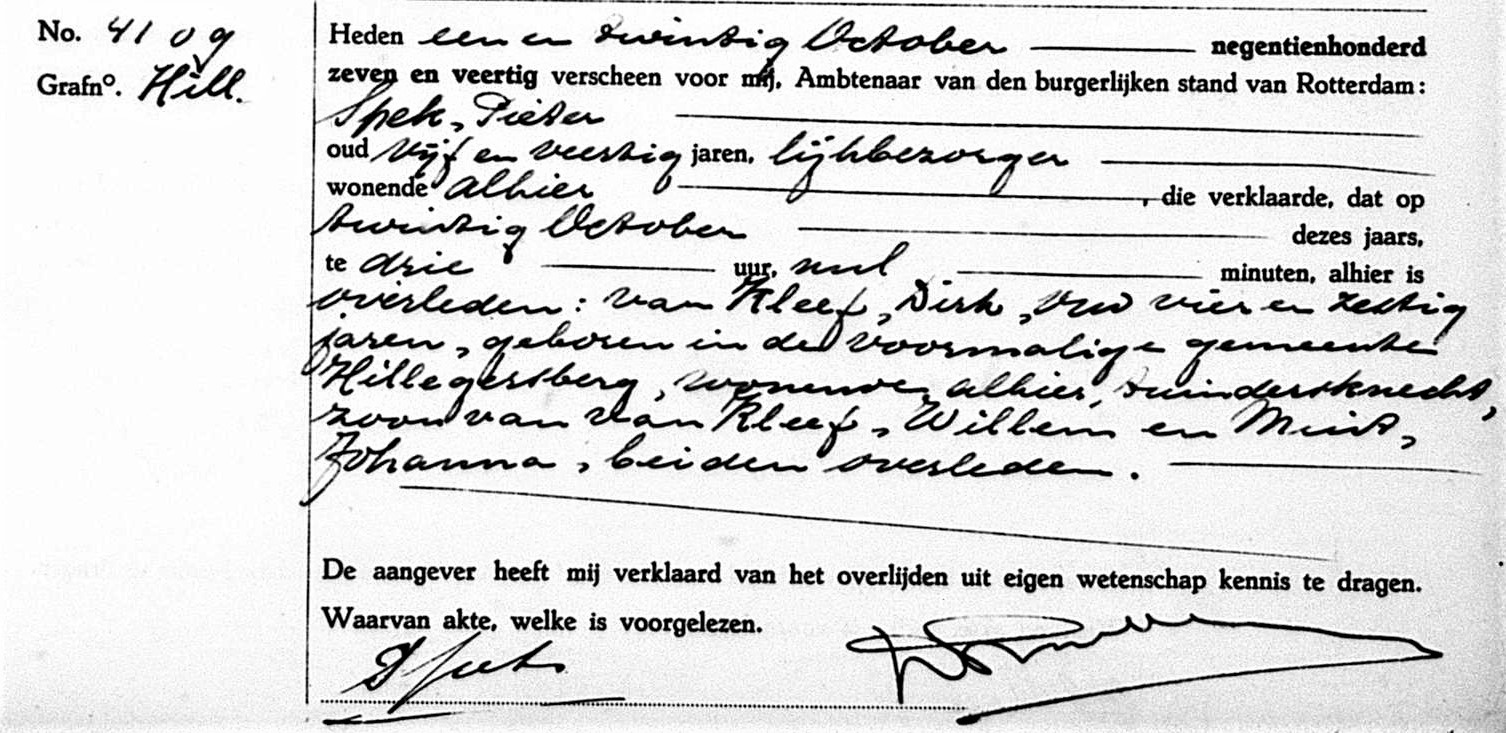 No. 4109
Grafno. Hill.
Heden een en twintig October negentienhonderd
zeven en veertig verscheen voor mij, Ambtenaar van den burgerlijken stand van Rotterdam:
Spek, Pieter
oud vijf en veertig jaren, lijkbezorger
wonende alhier, die verklaarde, dat op
twintig October dezes jaars,
te drie uur, nul minuten, alhier is
overleden: van Kleef, Dirk, oud vier en zestig
jaren, geboren in de voormalige gemeente
Hillegersberg, wonende alhier, tuindersknecht,
zoon van van Kleef, Willem en
Johanna, beiden overleden.
De aangever heeft mij verklaard van het overlijden uit eigen wetenschap kennis te dragen.
Waarvan akte, welke is voorgelezen.